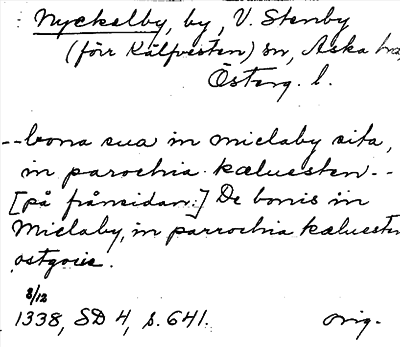 Nyckelby, by, V. Stenby
(förr Kälfvesten) sn, Aska hd,
Österg. l.
--bona sua in miclaby sita,
in parochia kæluesten--
[på frånsidan:] De bonis in
Miclaby, in parrochia kæluesten
ostgocie.
8/12
1338, SD 4, s. 641. orig.